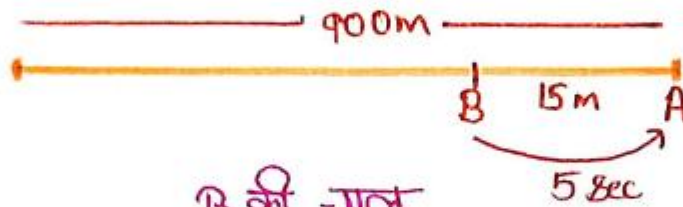 900m
B 15m A
5 Sec
B की चाल